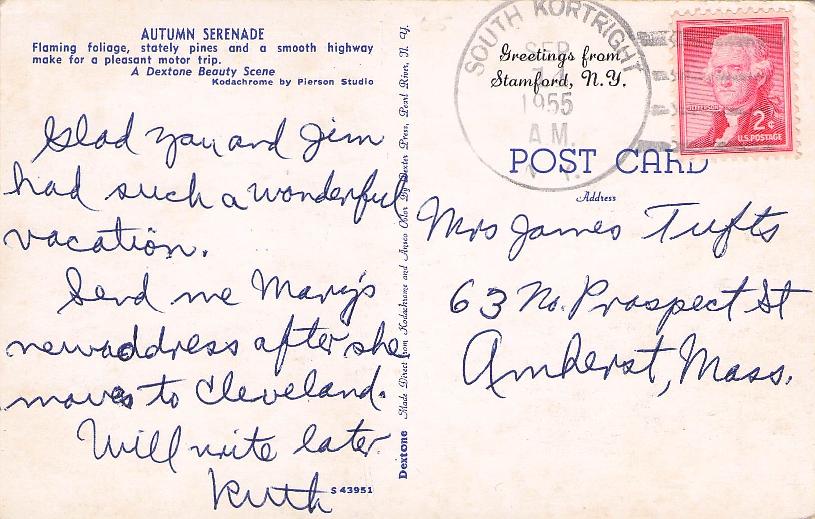 AUTUMN SERENADE
Flaming foliage, stately pines and a smooth highway
make for a pleasant motor trip.
A Dextone Beauty Scene
Kodachrome by Pierson Studio
Glad you and Jim
had such a wonderful
vacation.
Send me Mary's
new address after she
moves to Cleveland.
Will write later
Ruth
S 43951
Dextone Made Direct from Kodachrome and Ansco Color By Dexter Press, Pearl River, N. Y.
SOUTH KORTRIGHT
SEP
1955
A M
Greetings from
Stamford, N.Y.
JEFFERSON
2¢
U.S. POSTAGE
POST CARD
Address
Mrs James Tufts
63 No. Prospect St
Amherst, Mass.